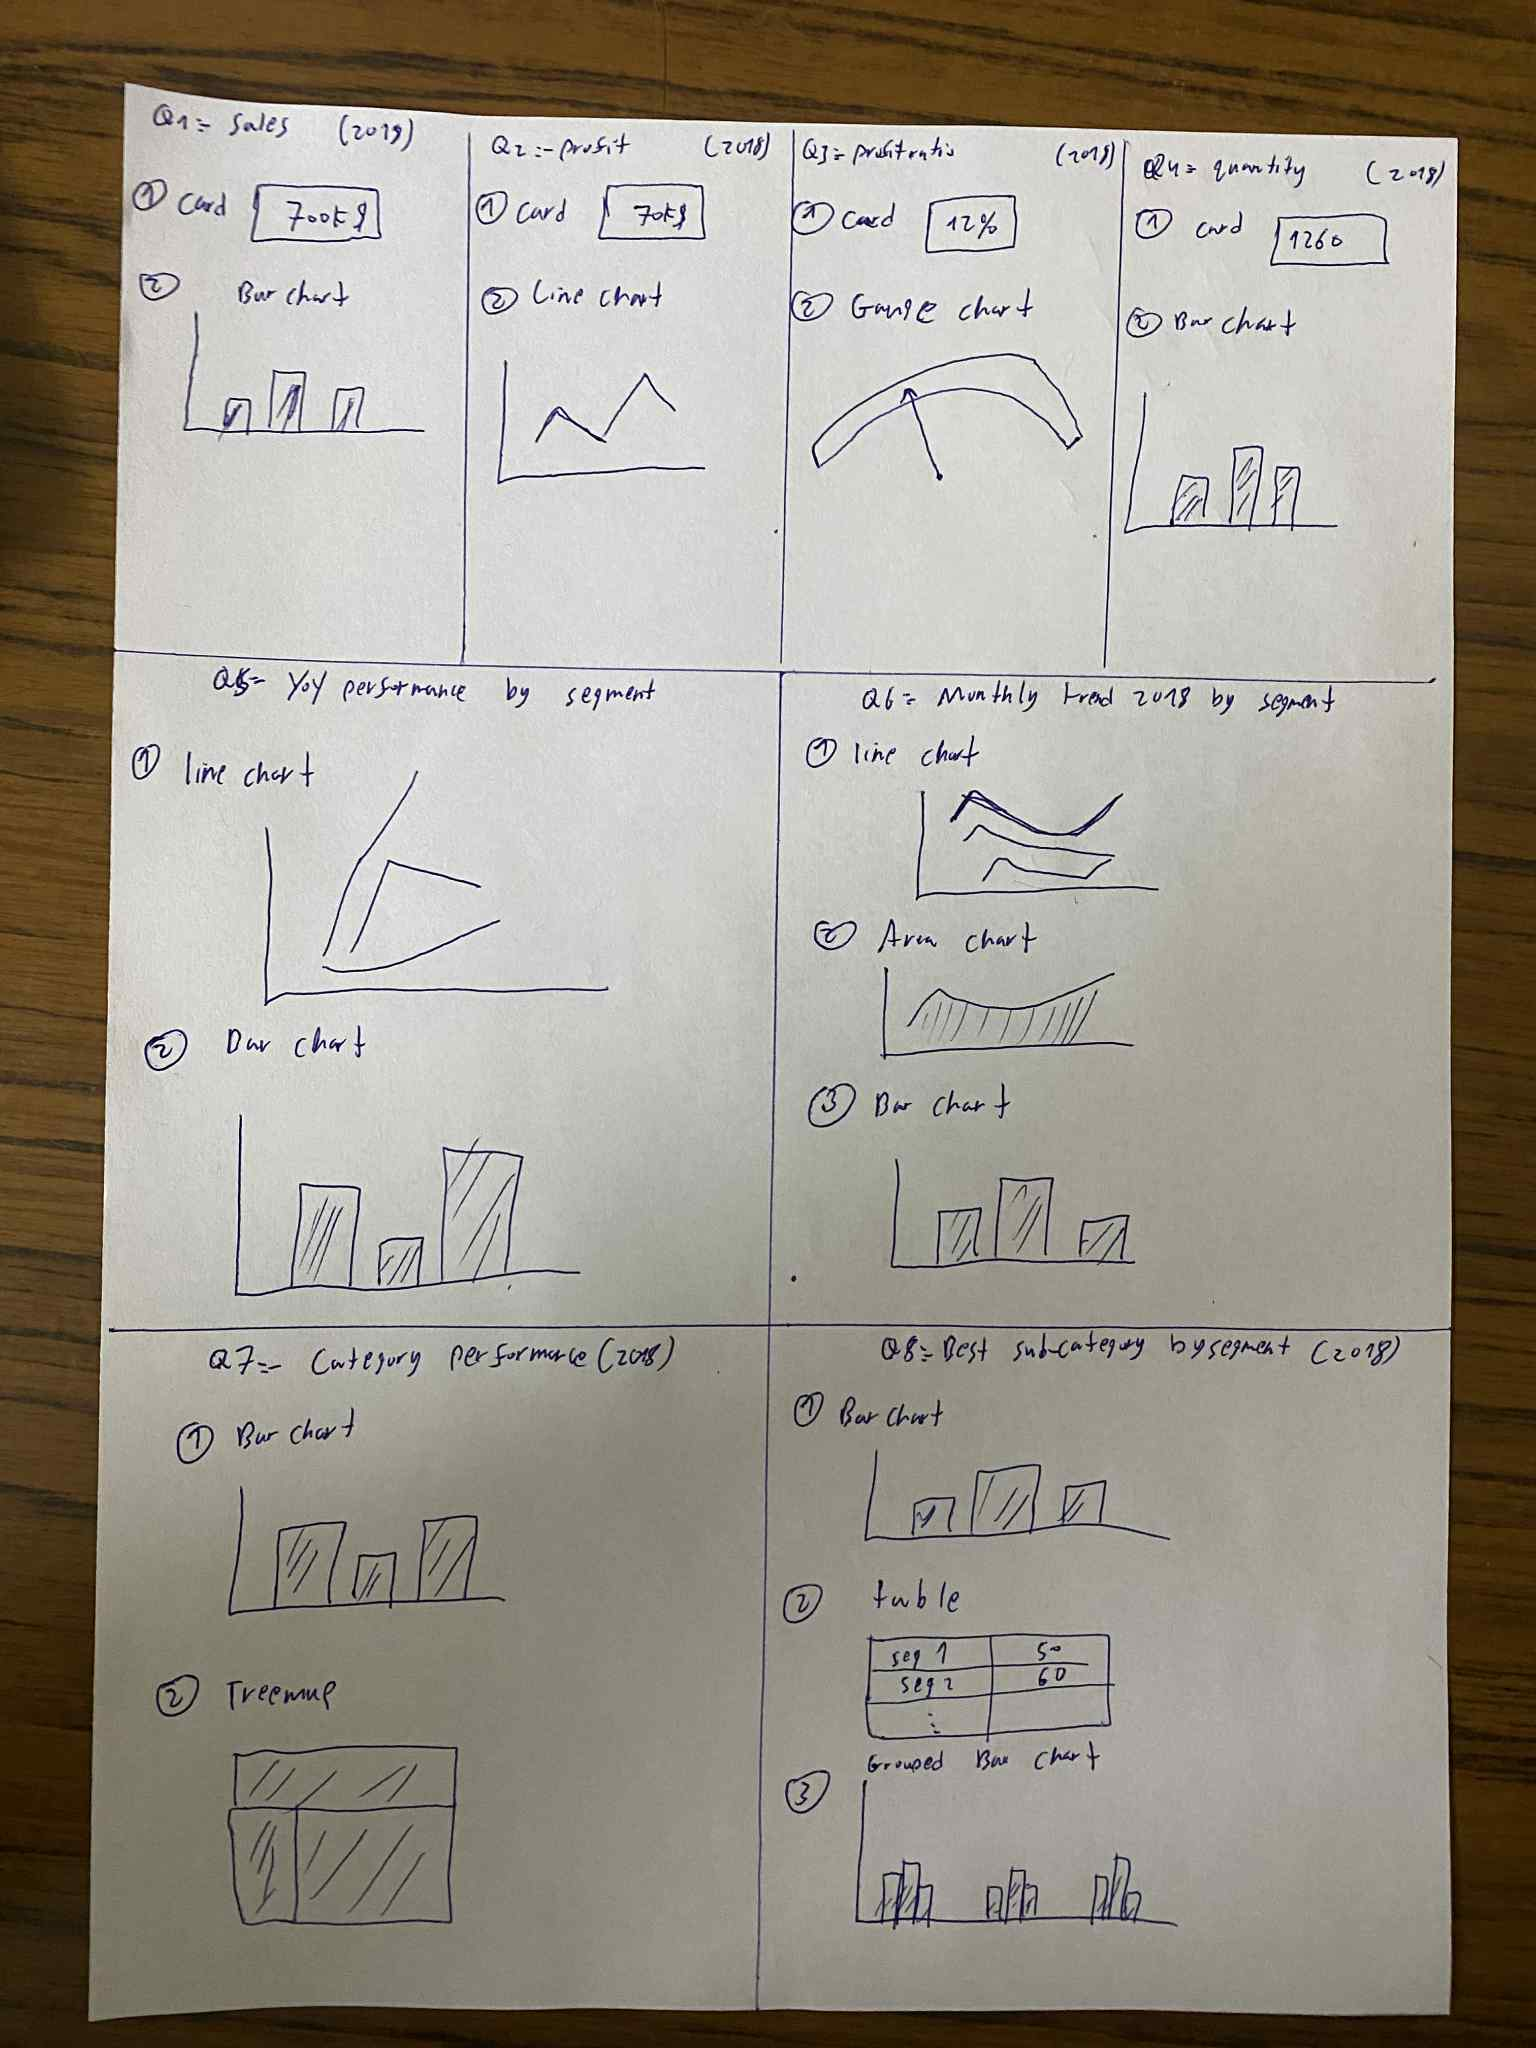 Q1:- Sales (2018)
① Card 700K$
② Bar chart
Q2:- profit (2018)
① Card 70K$
② Line chart
Q3:- profit ratio (2018)
① Card 12%
② Gauge chart
Q4:- quantity (2018)
① card 1260
② Bar chart
Q5:- YoY performance by segment
① line chart
② Bar chart
Q6:- Monthly trend 2018 by segment
① line chart
② Area chart
③ Bar chart
Q7:- Category performance (2018)
① Bar chart
② Treemap
Q8:- Best sub-category by segment (2018)
① Bar chart
② table
seg 1 50
seg 2 60
:
③ Grouped Bar chart